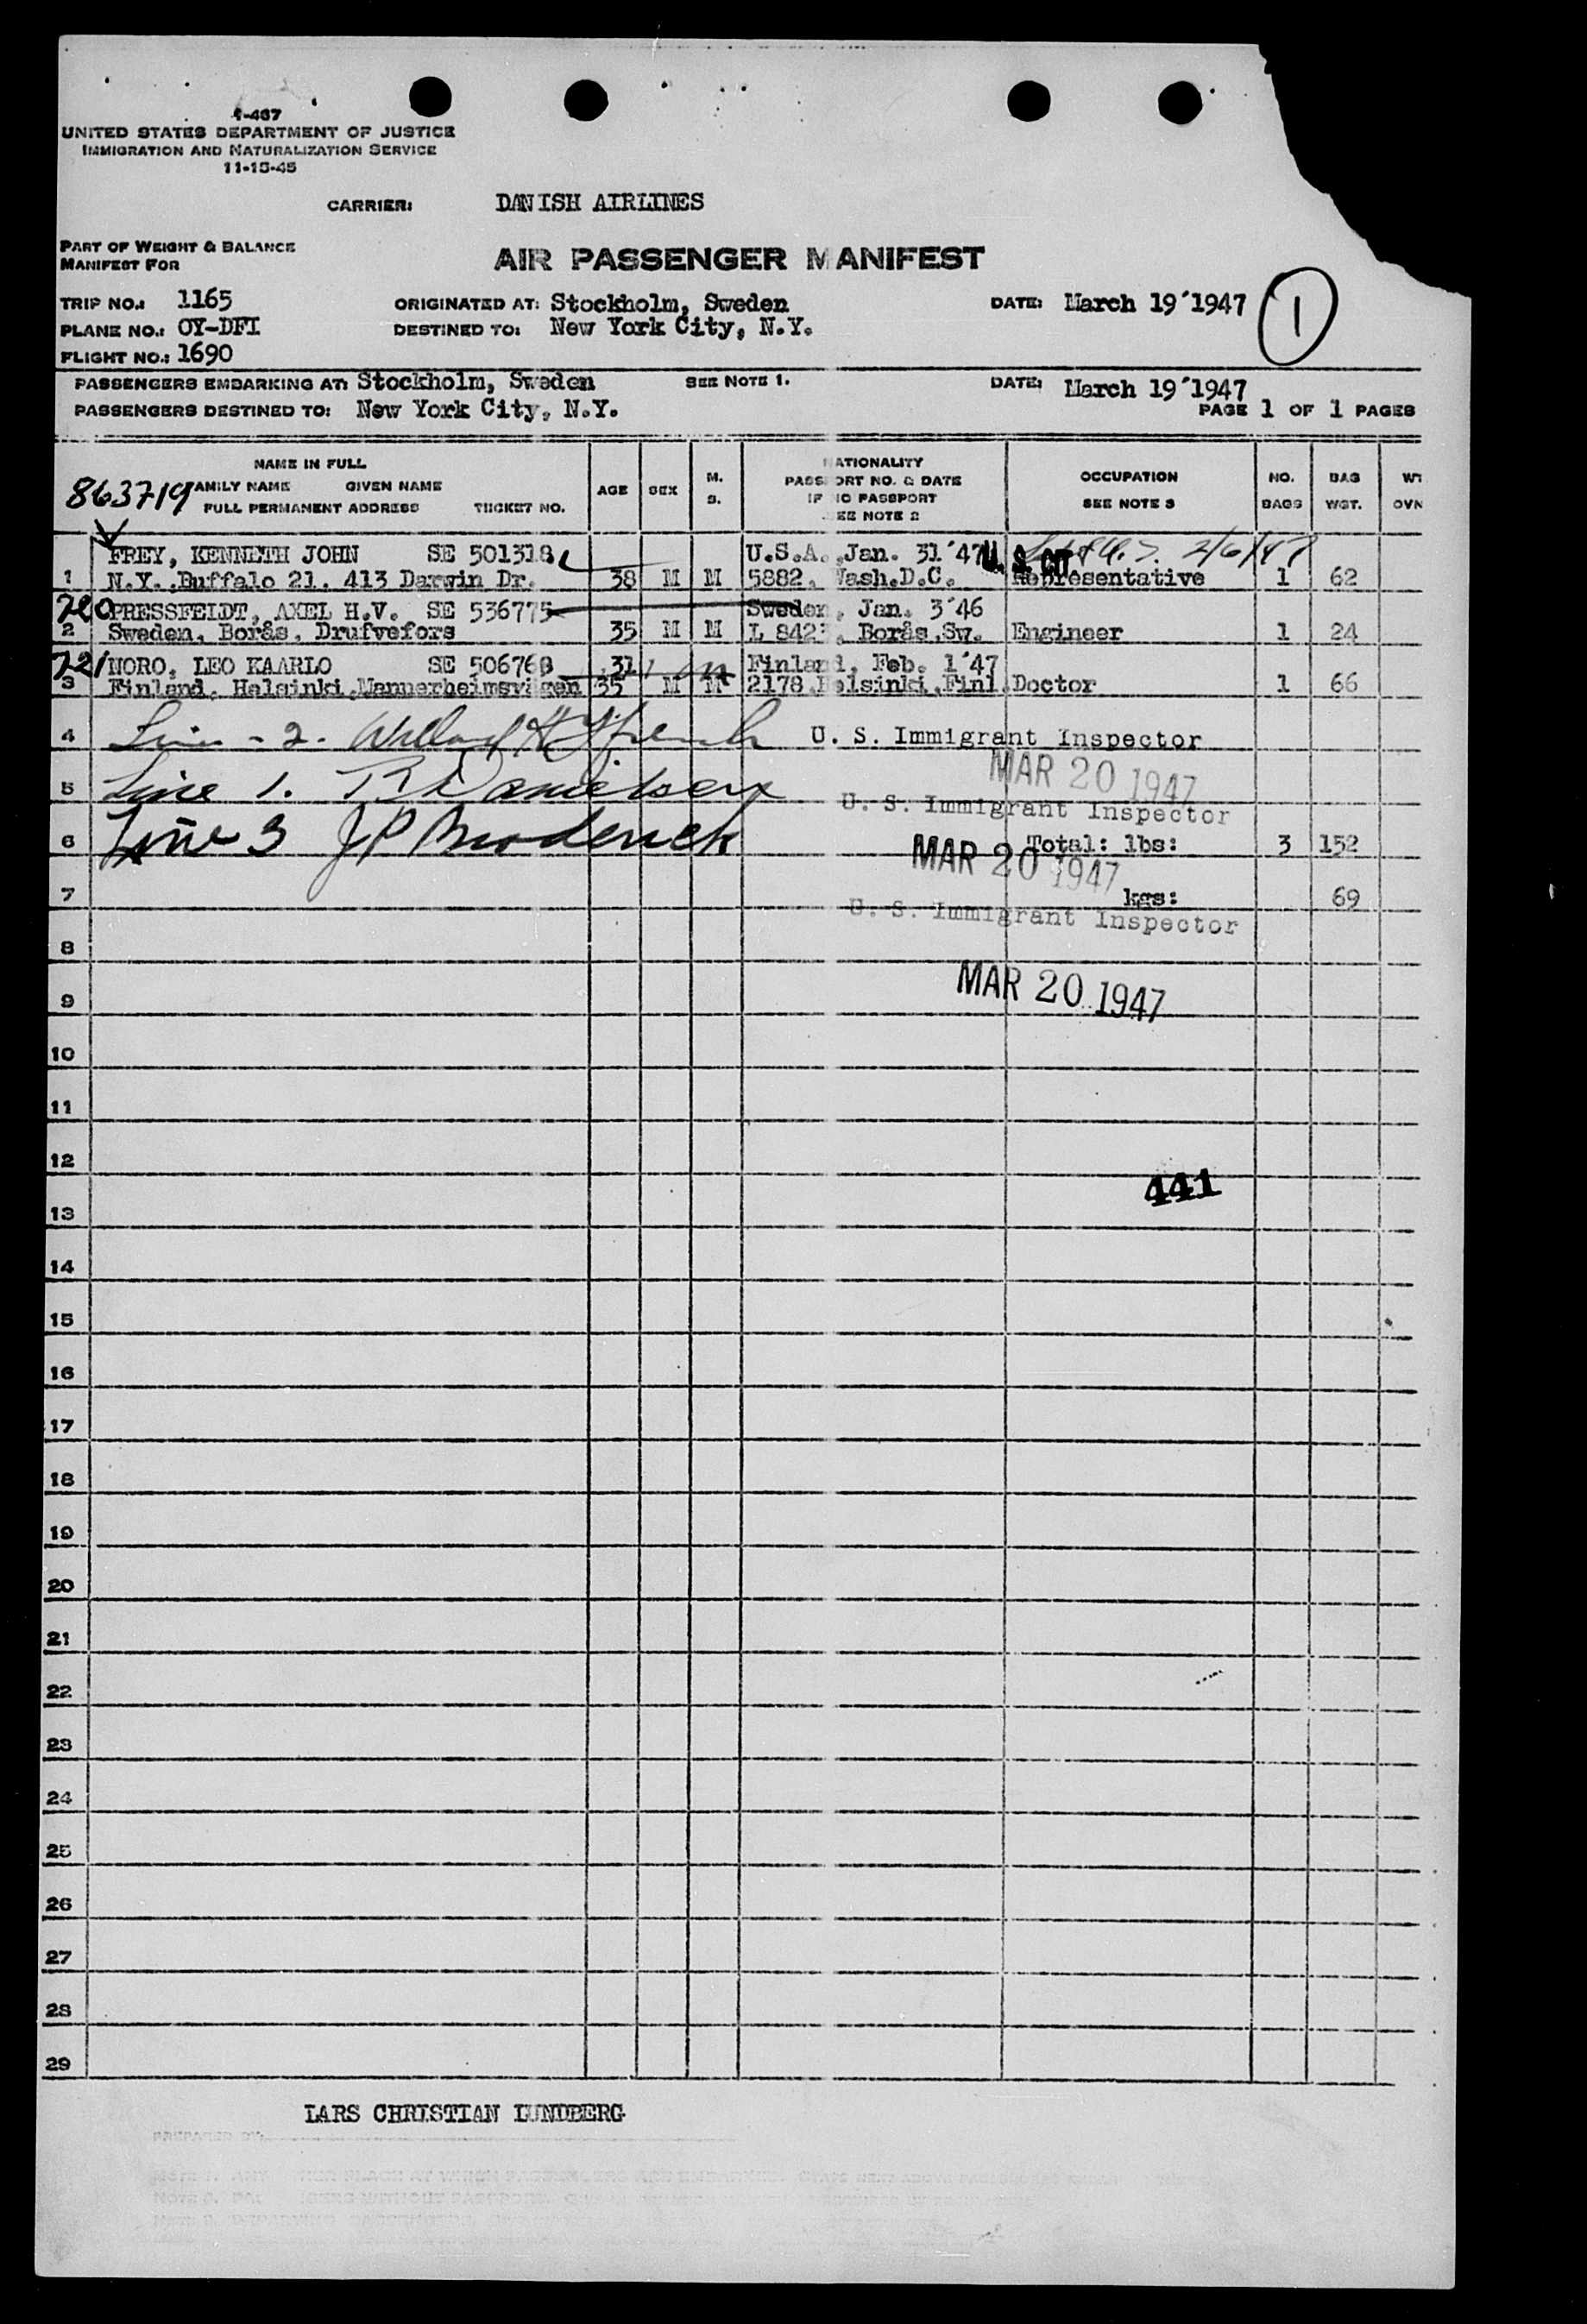 I-467
UNITED STATES DEPARTMENT OF JUSTICE
IMMIGRATION AND NATURALIZATION SERVICE
11-15-45
CARRIER: DANISH AIRLINES
PART OF WEIGHT & BALANCE
MANIFEST FOR
AIR PASSENGER MANIFEST
TRIP NO.: 1165 ORIGINATED AT: Stockholm, Sweden DATE: March 19'1947 1
PLANE NO.: OY-DFI DESTINED TO: New York City, N.Y.
FLIGHT NO.: 1690
PASSENGERS EMBARKING AT: Stockholm, Sweden SEE NOTE 1. DATE: March 19'1947
PASSENGERS DESTINED TO: New York City, N.Y. PAGE 1 OF 1 PAGES
NAME IN FULL
863719 FAMILY NAME GIVEN NAME
FULL PERMANENT ADDRESS TICKET NO.
AGE
SEX
M.
S.
NATIONALITY
PASSPORT NO. & DATE
IF NO PASSPORT
SEE NOTE 2
OCCUPATION
SEE NOTE 3
NO.
BAGS
BAG
WGT.
WT
OVN
FREY, KENNETH JOHN SE 501318 U.S.A. ,Jan. 31'47 U. S. CIT. 2/6/47
1 N.Y.,Buffalo 21. 413 Darwin Dr. 38 M M 5882. Wash.D.C. Representative 1 62
720 PRESSFELDT, AXEL H.V. SE 536775 Sweden, Jan. 3'46
2 Sweden, Borås, Drufvefors 35 M M L 842 , Borås,Sw. Engineer 1 24
721 NORO, LEO KAARLO SE 506768 31 M Finland, Feb. 1'47
3 Finland, Helsinki,Mannerheimsvägen 35 M M 2178.Helsinki,Finl. Doctor 1 66
4 Line - 2. U. S. Immigrant Inspector
MAR 20 1947
5 Line 1. Danielsen U. S. Immigrant Inspector
6 Line 3 JP Broderick Total: lbs: 3 152
MAR 20 1947
7 kgs: 69
U. S. Immigrant Inspector
8
MAR 20 1947
9
10
11
12
441
13
14
15
16
17
18
19
20
21
22
23
24
25
26
27
28
29
LARS CHRISTIAN LUNDBERG
PREPARED BY: